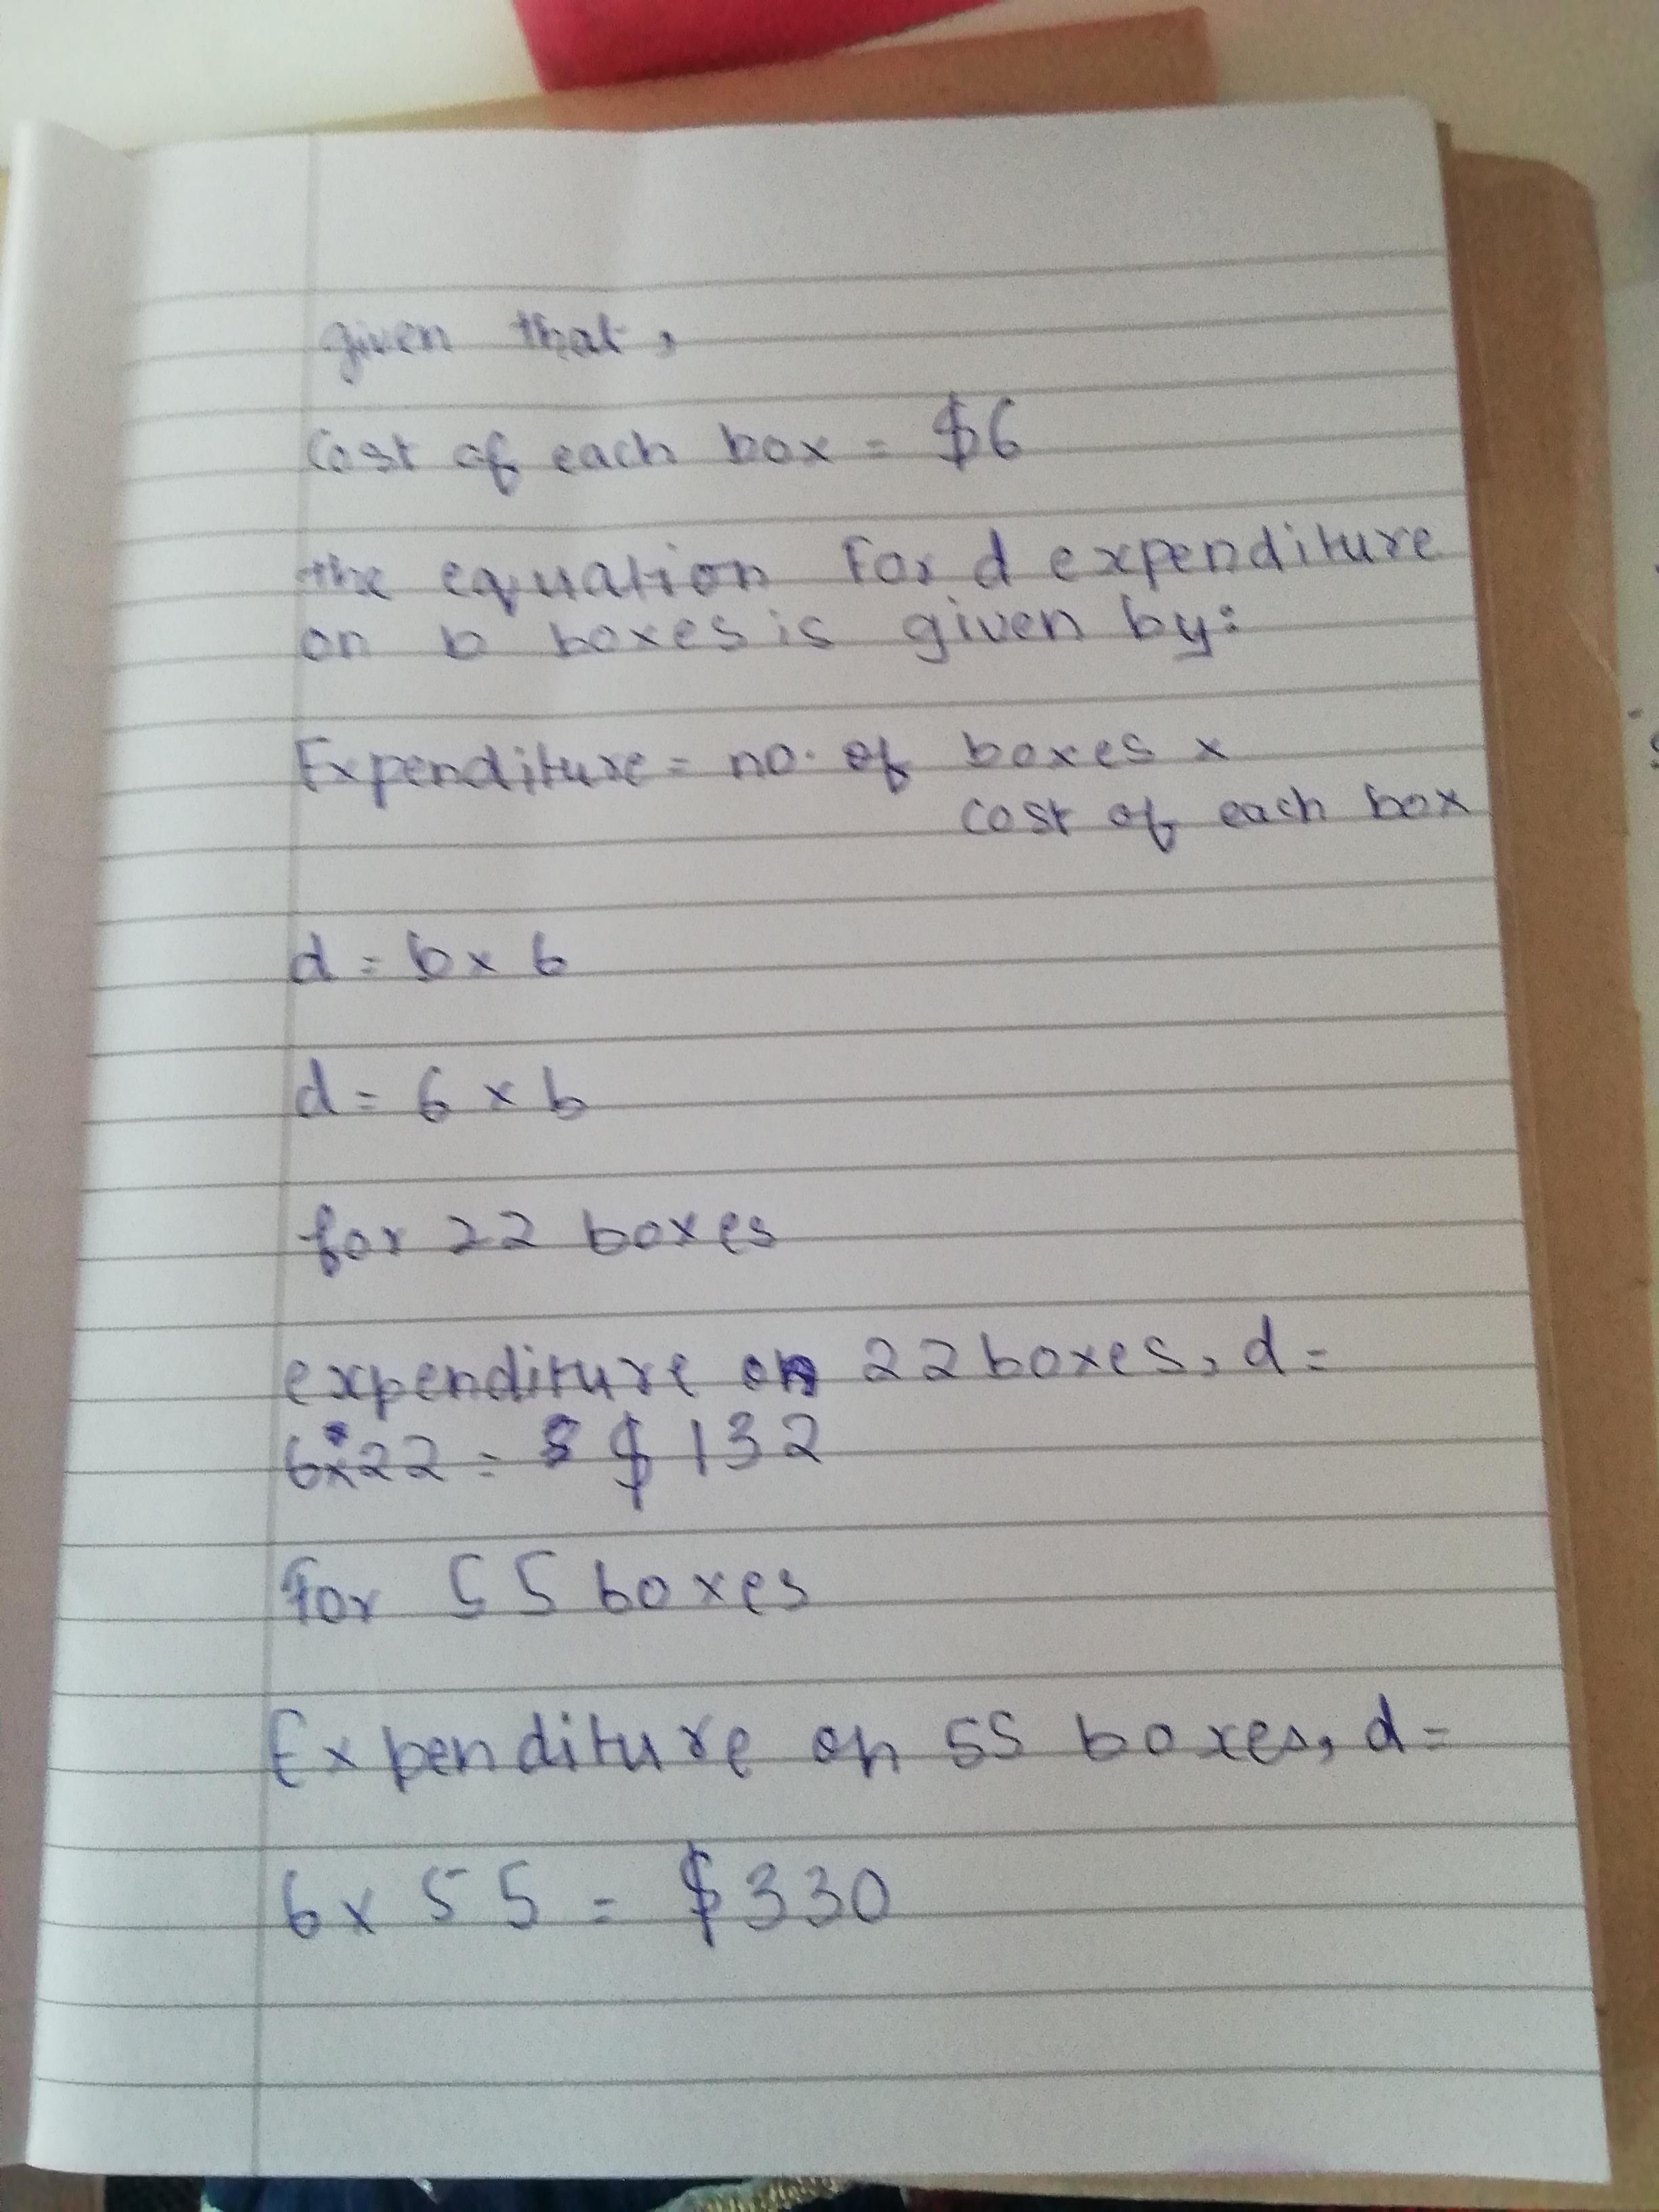 given that,
Cost of each box = $6
the equation For d expenditure
on b boxes is given by:
Expenditure = no. of boxes x
cost of each box
d = b x 6
d = 6 x b
for 22 boxes
expenditure on 22 boxes, d =
6x22 = $ 132
For 55 boxes
Expenditure on 55 boxes, d =
6 x 55 = $330